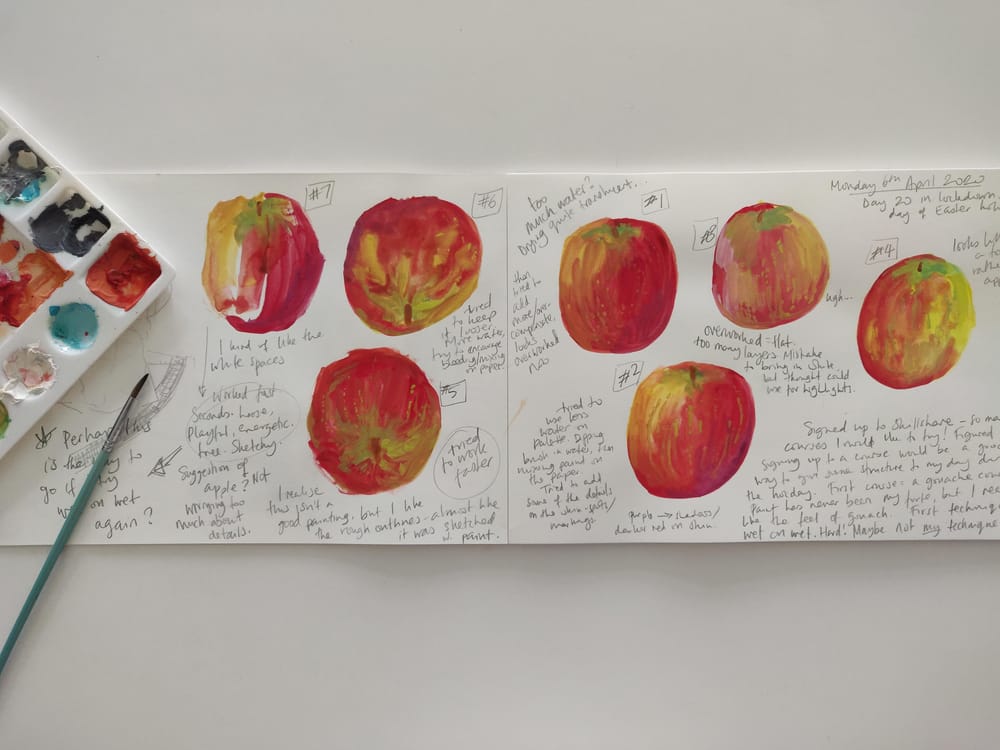 #7
I kind of like the
white spaces
Worked fast
Seconds. Loose,
Playful, energetic,
free. Sketchy.
Suggestion of
apple? Not
worrying too
much about
details.
#6
tried
to keep
it looser.
More water,
try to encourage
bleeding/mixing
on paper.
#5
tried
to work
faster
I realise
this isn't a
good painting, but I like
the rough outlines - almost like
it was sketched
w. paint.
Perhaps this
is the way to
go if I try
wet on wet
again?
Monday 6th April 2020
Day 20 in lockdown
day of Easter
#1
too
much water?
Drying quite translucent...
then
tried to
add
more
compensate,
looks
overworked
#3
ugh...
overworked = flat.
too many layers. Mistake
to bring in white
but thought could
use for highlights.
#4
looks
a
rather
#2
tried to
use less
water on
palette. Dipping
brush in water, then
mixing paint on
the paper.
Tried to add
some of the details
on the skin - spots/
markings.
purple → shadows/
darker red on skin.
Signed up to Skillshare - so
courses I would like to try! Figured
signing up to a course would be a good
way to give some structure to my day
the holiday. First course = a gouache
Paint has never been my forte, but I
like the feel of gouach. First
wet on wet. Hard. Maybe not my technique